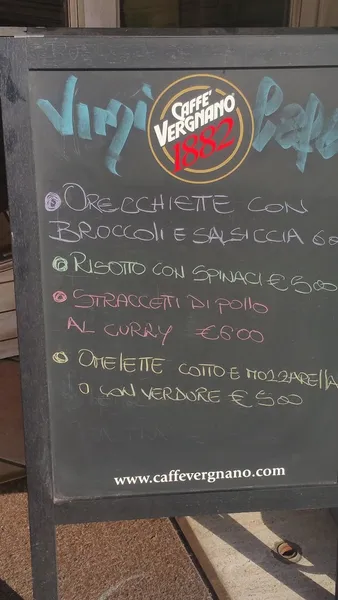 Vinji Cafè
CAFFÈ
VERGNANO
1882
ORECCHIETTE CON
BROCCOLI E SALSICCIA 6
RISOTTO CON SPINACI €5,00
STRACCETTI DI POLLO
AL CURRY €6,00
OMELETTE COTTO E MOZZARELLA
O CON VERDURE €5,00
www.caffevergnano.com